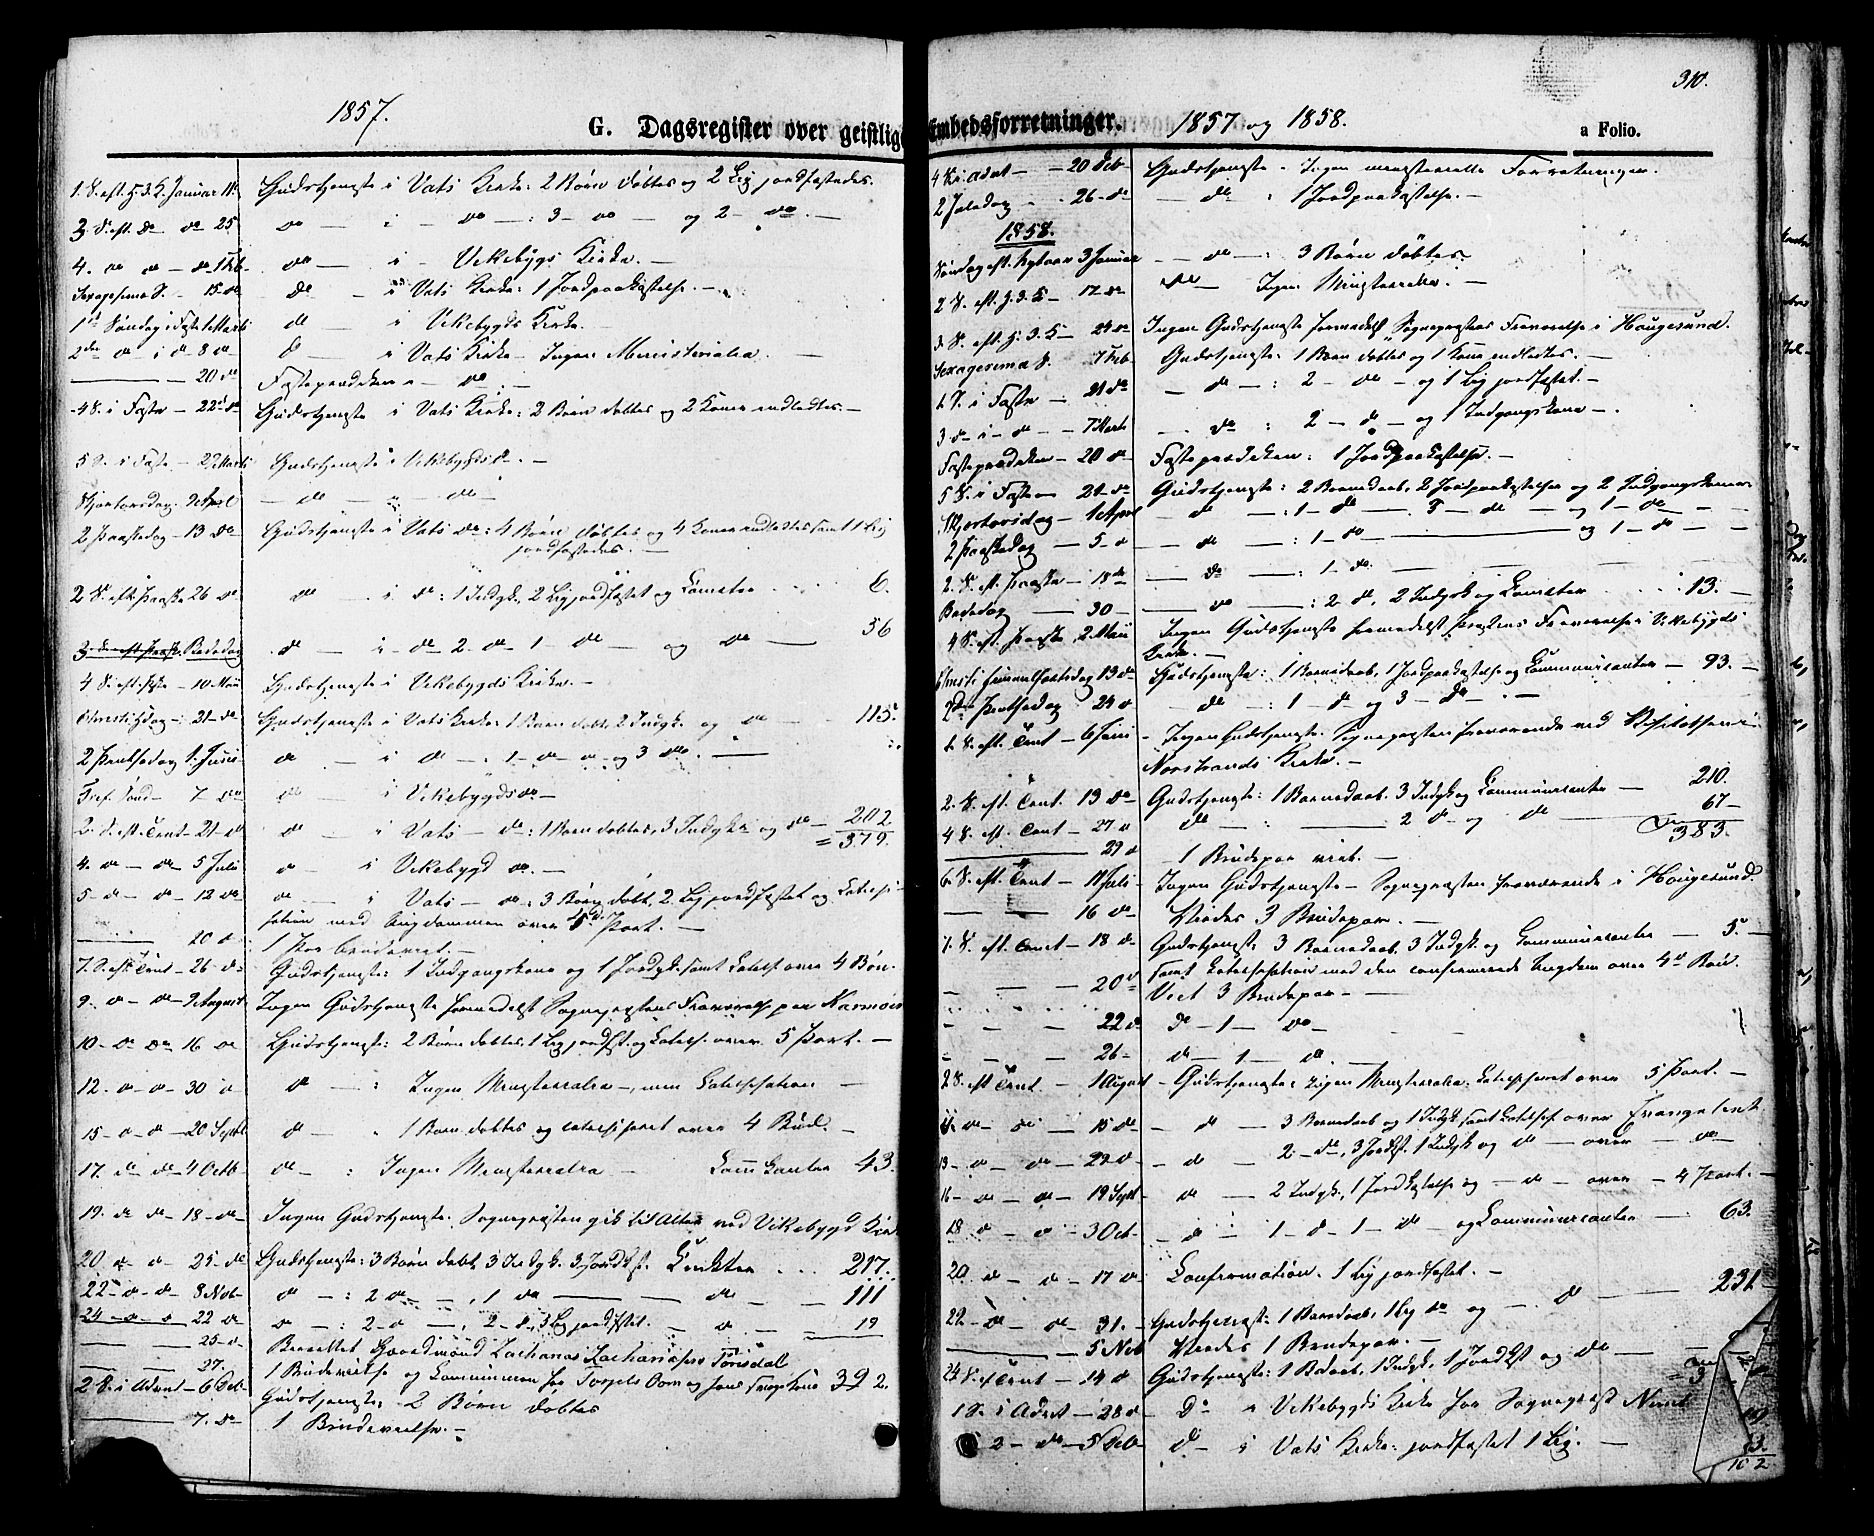 1857.
G. Dagsregister over geistlige
1. S. eft. H. 3. K. Januar 11te Gudstjeneste i Vats Kirke: 2 Børn døbtes og 2 Lig jordfæstedes.
3. S. eft. do do 25 do — i — do —: 3 — do — og 2 — do. —
4. do do — do 1 Feb. do — i — Vikebygs Kirke. —
Sexagesima S. — 15 do do — i Vats Kirke: 1 Jordpaakastelse. —
1ste Søndag i Faste 1 Marts do — i Vikebygds Kirke. —
2den do i do 8 do do — i Vats Kirke — Ingen Ministerialia. —
— 20 do Fasteprædiken i — do. —
4 S. i Faste — 22 do Gudstjeneste i Vats Kirke: 2 Børn døbtes og 2 Koner indledtes. —
5 S. i Faste — 29 Marts Gudstjeneste i Vikebygds do. —
Skjertorsdag. 9 April — do — " — do —
2 Paaskedag — 13 do Gudstjeneste i Vats do: 4 Børn døbtes og 4 Koner indledtes samt 1 Lig
jordfæstedes. —
2 S. eft. Paaske 26 do do — i do: 1 Indgk., 2 Lig jordfæstet og 6.
Bededag do — i — do 2 — do — 1 do — og do — 56
4 S. eft. — 10 Mai Gudstjeneste i Vikebygds Kirke. —
— 21 — do Gudstjeneste i Vats Kirke: 1 Barn døbt, 2 Indgk. og do — 115.
2 Pentsedag 1. Juni do — i do —: 1 — do — do — og 3 do. —
Tref. Sønd — 7 — do do — i Vikebygds do —
2. S. eft. Trint — 21 — do do — i Vats — do: 1 Barn døbtes, 3 Indgk. og do — 202
= 379.
4. do — do 5 Juli do — i Vikebygd do. —
5 — do — do — 12 do do — i Vats — do: 3 Børn døbt, 2 Lig jordfæstet og Catechi-
sation med Ungdommen over 5te Part. —
— 20 do 1 Par brudeviet. —
7. S. eft. Trint — 26 — do Gudstjeneste: 1 Indgangskone og 1 Jordpk. samt Catech. over 4 Bøn.
9. do — do — 9 August Ingen Gudstjeneste formedelst Sognepræstens Fraværelse paa Karmøen
10 — do do 16 do Gudstjeneste: 2 Børn døbtes, 1 Lig jordfst. og Catech. over 5 Part. —
12. do — do — 30 do do — : Ingen Ministerialia —, men Catechisation —
15 — do — do — 20 Septb do — " 1 Barn døbtes og catechiseret over 4 Bud. —
17. do do — 4 Octb do — : Ingen Ministerialia — Communicanter 43.
19. do do — 18 — do Ingen Gudstjeneste. Sognepræsten gik til Alters ved Vikebygd Kirke
20 do — do — 25 — do Gudstjeneste: 3 Børn døbt, 3 Indgk. 3 Jordkst. 217.
22 — do — do — 8 Nov. do — : 2 do —, 1 do — do — 111
24 — do — do — 22 do do — : 2 — do —, 2 — do, 3 Lig jordfstet. — do — 19
— 25 — do Zacharias Zachariassen
— 27. 1 Brudevielse og Communion for 392.
2 S. i Advent — 6 Decb Gudstjeneste: 2 Børn døbtes
— 7. do 1 Brudevielse. —
310.
Embedsforretninger.
1857 og 1858.
a Folio.
4 S. i Advt — 20 Decb Gudstjeneste — Ingen ministerielle Forretninger.
2 Juledag — 26 — do — do : 1 Jordpaakastelse. —
1858.
Søndag eft. Nytaar 3 Januar — do — : 3 Børn døbtes.
2 S. eft. H. 3. K — 17 do do — Ingen Ministerialia. —
3. S. eft. H. 3. K — 24 do Ingen Gudstjeneste formedelst Sognepræstens Fraværelse i Haugesund.
Sexagesima S. 7 Feb. Gudstjeneste: 1 Barn døbtes og 1 Kone indledtes. —
1. S. i Faste — 21 do — do — : 2 — do — og 1 Lig jordfæstet. —
3 do — i — do — 7 Marts — do : 2 — do — og 1 Indgangskone —.
Fasteprædiken — 20 do — Fasteprædiken: 1 Jordpaakastelse. —
5 S. i Faste — 21 — do Gudstjeneste: 2 Barnedaab, 2 Jordpaakastelser og 2 Indgangskoner
Skjertorsdag — 1 April — do — : 1 — do — do — og 1 — do —
2 Paaskedag — 5 — do — do — : 1 — do — og 1 — do —
2. S. eft. Paaske — 18 do — do — : 1 — do —
Bededag — 30 — — do — : 2 do, 2 Indgk og 13.
4 S. eft. Paaske 2 Mai Ingen Gudstjeneste formedelst Præstens Fraværelse i Vikebygds
Kirke. —
Christi Himmelfartsdag 13 do Gudstjeneste: 1 Barnedaab, 1 Jordpaakastelse og Communicanter — 93. —
2den Pentsedag 24 do — do — : 1 — do og 3 — do —
1. S. eft. Trint — 6 Juni — Ingen Gudstjeneste. Sognepræsten fraværende ved Visitatsen i
Norstrands Kirke. —
2. S. eft. Trint. 13 do Gudstjeneste: 1 Barnedaab, 3 Indgk og Communicanter — 210.
4 S. eft. Trint — 27 do do — : — 2 do — og do — 67 —
383.
— 29 do 1 Brudepar viet. —
6. S. eft. Trint — 11 Juli — Ingen Gudstjeneste — Sognepræsten fraværende i Haugesund
— 16 do Viedes 3 Brudepar. —
7. S. eft. Trint — 18 do Gudstjeneste: 3 Barnedaab, 3 Indgk. og Communicanter — 5. —
samt Catechisation med den confirmerede Ungdom over 4de Bøn.
— 20 do Viet 3 Brudepar. —
— 22 do do — 1 — do —
— 26 — do — 1 — do. —
S. eft Trint. — 1 August — Gudstjeneste: Ingen Ministerialia: Catechiseret over 5 Part. —
11. do — do — 15 do — do — 3 Barnedaab og 1 Indgk samt Catech. over Evangeliet
13 — do — do — 29 do — do — 2 — do, 3 Jordkst. 1 Indgk og do — over — do —
16 — do — do — 19 Sept — do — 2 Indgk., 1 Jordkastelse og — do — over — 4 Part. —
18 do — do — 3 Oct — do — : 1 — do — 1 — do — og Communicanter — 63.
20 do — do — 17 do Confirmation. 1 Lig jordfæstet. —
22 — do — do — 31. — Gudstjeneste: 1 Barnedaab, 1 Lig do og — do — 231
— 5 Nov Viedes 1 Brudepar. —
24 S. ef. Trint — 14 do Gudstjeneste: 1 Bdaab, 1 Indgk, 1 Jordkst og do —
1 S. i Advent — 28 do — Do i Vikebygds Kirke for Sognepræst
2 — do — 5 Decb do — i Vats Kirke: jordfæstet 1 Lig. —